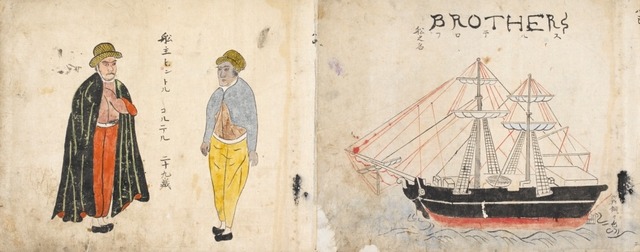 BROTHERS
フロテルス
船之名
船主トントル コルテル 二十九歳